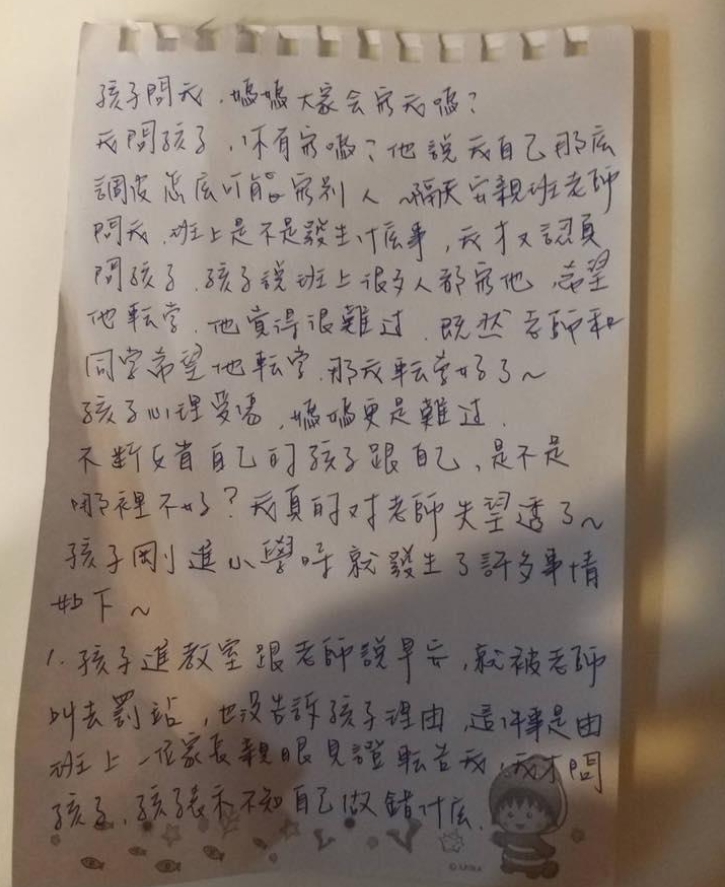 孩子問我，媽媽大家会寃我嗎？
我問孩子，你有寃嗎？他説我自己那広
調皮怎広可能寃別人～隔天安親班老師
問我，班上是不是發生什広事，我才又認真
問孩子，孩子説班上很多人都寃他，希望
他転学，他覚得很難过，既然老師和
同学希望他転学，那我転学好了～
孩子心理受傷，媽媽更是難过，
不断反省自己的孩子跟自己，是不是
哪裡不好？我真的对老師失望透了～
孩子剛進小學時就發生了許多事情
如下～
1. 孩子進教室跟老師説早安，就被老師
叫去罰站，也没告訴孩子理由，這件事是由
班上一位家長親眼見證転告我，我才問
孩子，孩子表示不知自己做錯什広，